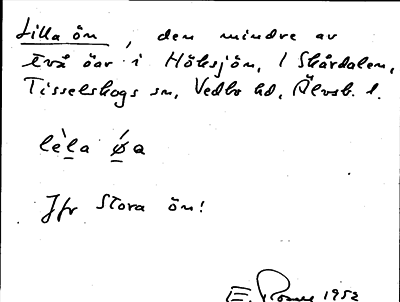 Lilla ön, den mindre av
två öar i Höksjön, i Skårdalen,
Tisselskogs sn, Vedbo hd, Älvsb. l.
lèla øa
Jfr Stora ön!
E. 1952